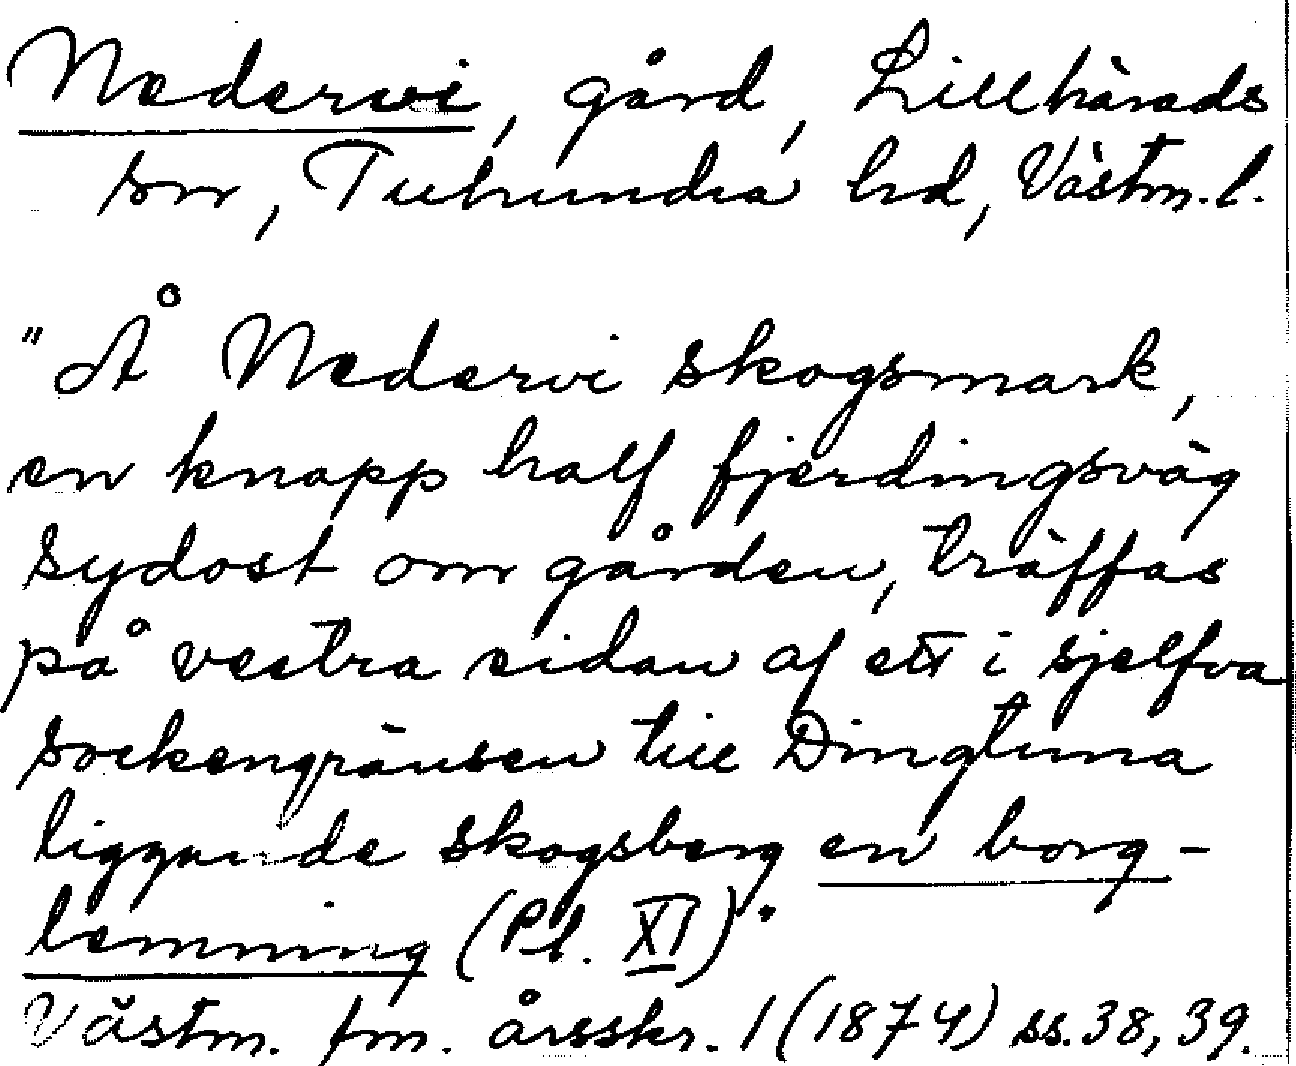 Nedervi, gård, Lillhärads
sn, Tuhundra hd, Västm. l.
"Å Nedervi skogsmark,
en knapp half fjerdingsväg
sydost om gården, träffas
på vestra sidan af ett i sjelfva
sockengränsen till Dingtuna
liggande skogsberg en borg-
lemning (Pl. XI)".
Västm. fm. årsskr. 1 (1874) ss. 38, 39.